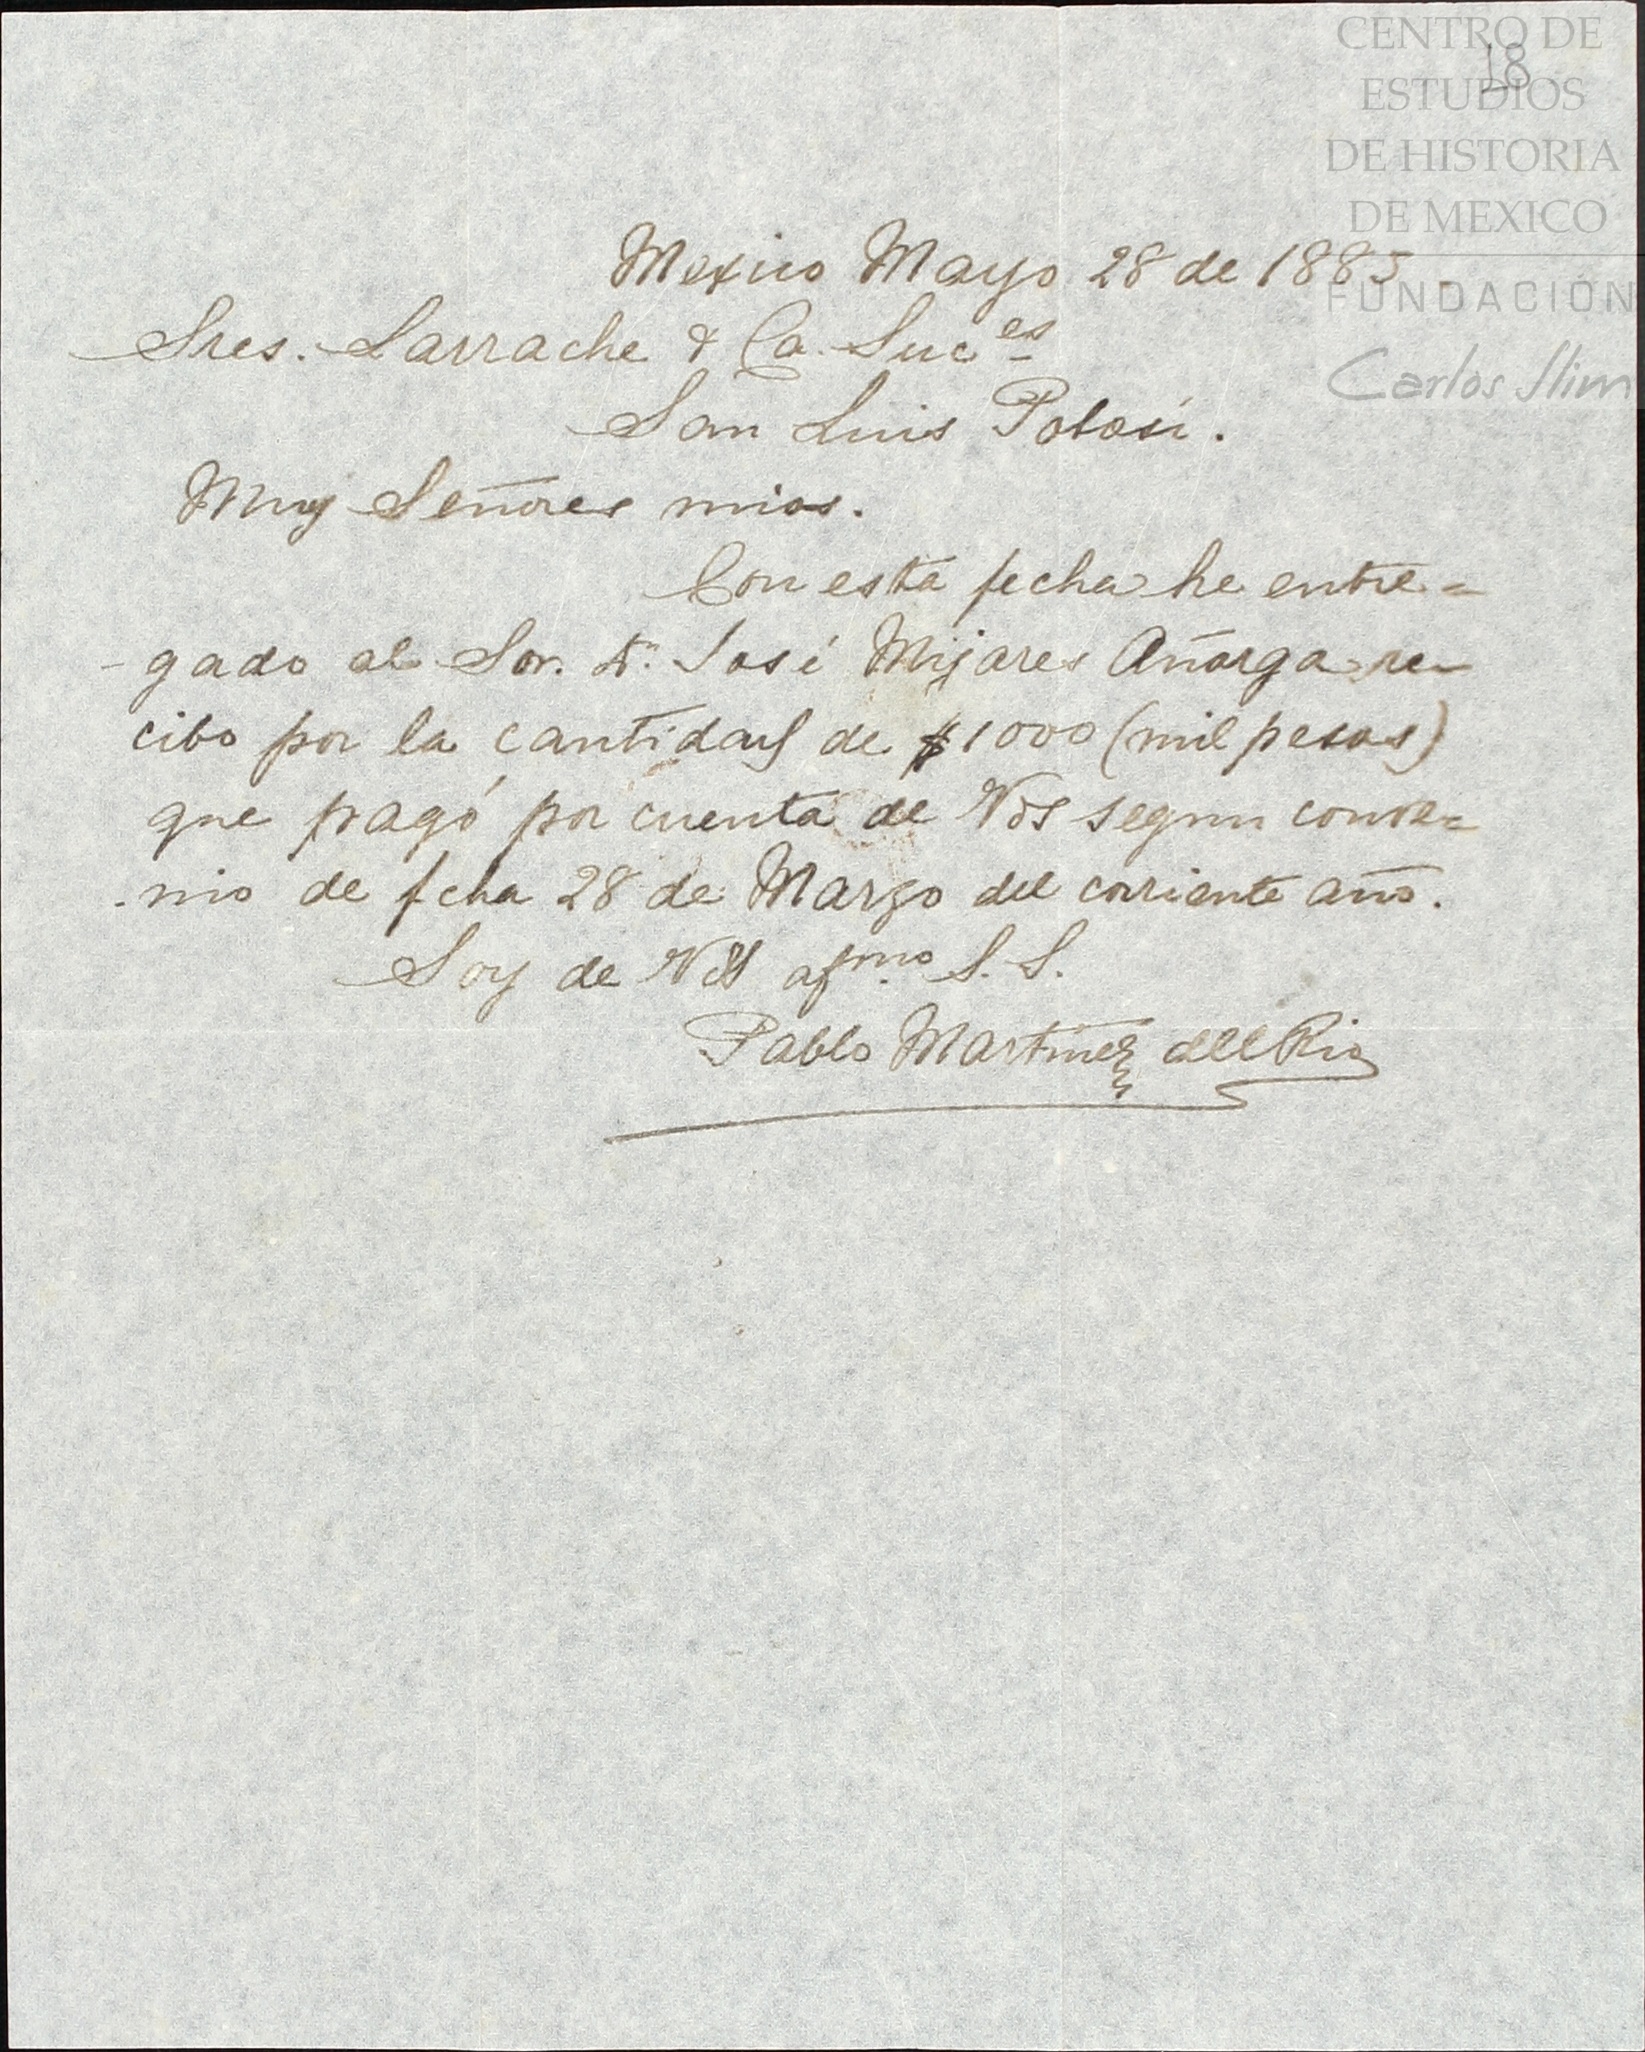 CENTRO DE
ESTUDIOS
DE HISTORIA
DE MEXICO
FUNDACIÓN
Carlos Slim
18
Mexico Mayo 28 de 1885
Sres. Larrache & Ca. Suc.es
San Luis Potosí.
Muy Señores mios.
Con esta fecha he entre=
-gado al Sor. Dn. José Mijares Añorga re-
cibo por la cantidad de $1000 (mil pesos)
que pagó por cuenta de Vds segun conve=
-nio de fcha 28 de Marzo del corriente año.
Soy de Vds afmo. S. S.
Pablo Martinez del Rio